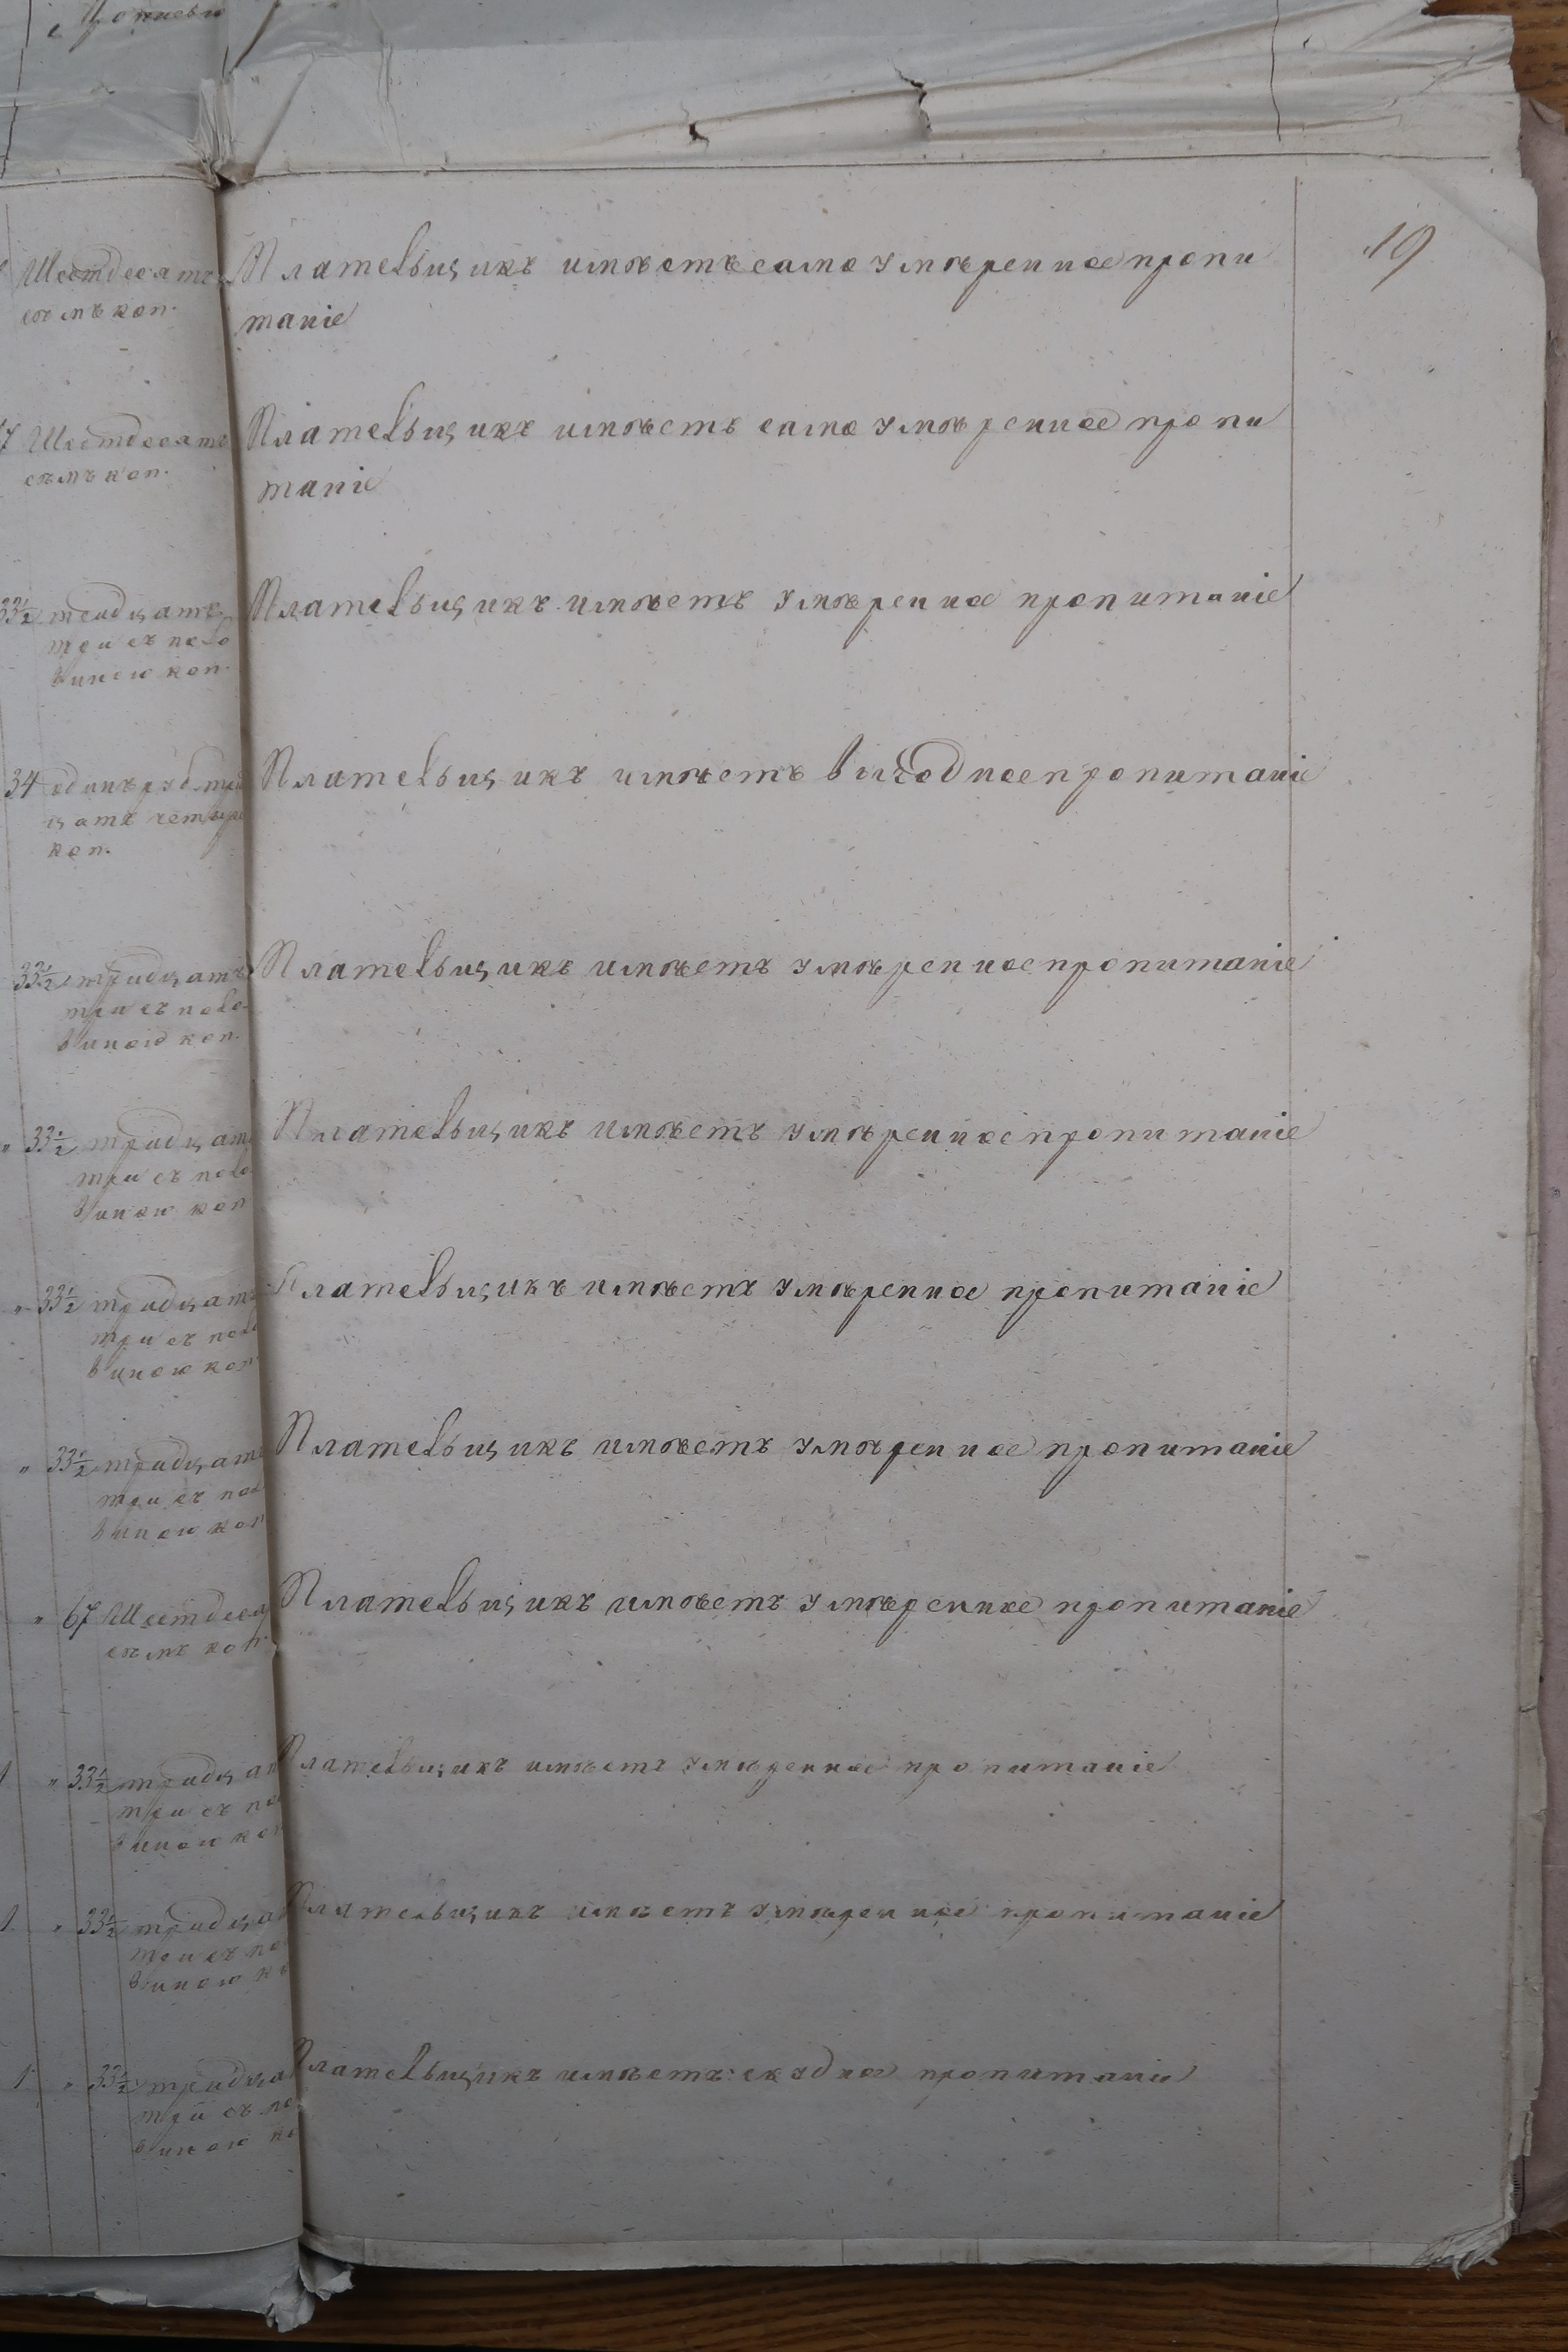 19
Шестдесятъ
семъ коп.
Плательщикъ имѣетъ само умѣренное пропи
таніе
67 Шестдесятъ
семъ коп.
Плательщикъ имѣетъ само умѣренное пропи
таніе
33½ тридцать
три съ поло
виною коп.
Плательщикъ имѣетъ умѣренное пропитаніе
34 одинъ руб. три
цать четыре
коп.
Плательщикъ имѣетъ выгодное пропитаніе
33½ тридцать
три съ поло
виною коп.
Плательщикъ имѣетъ умѣренное пропитаніе
„ 33½ тридцат
три съ поло
виною коп
Плательщикъ имѣетъ умѣренное пропитаніе
„ 33½ тридцат
три съ поло
виною коп
Плательщикъ имѣетъ умѣренное пропитаніе
„ 33½ тридцат
три съ пол
виною коп
Плательщикъ имѣетъ умѣренное пропитаніе
„ 67 Шестдеся
семъ коп.
Плательщикъ имѣетъ умѣренное пропитаніе
1 „ 33½ тридцат
три съ по
виною коп
Плательщикъ имѣетъ умѣренное пропитаніе
1 „ 33½ тридца
три съ по
виною к
Плательщикъ имѣетъ умѣренное пропитаніе
1 „ 33½ тридца
три съ по
виною ко
Плательщикъ имѣетъ скудное пропитаніе